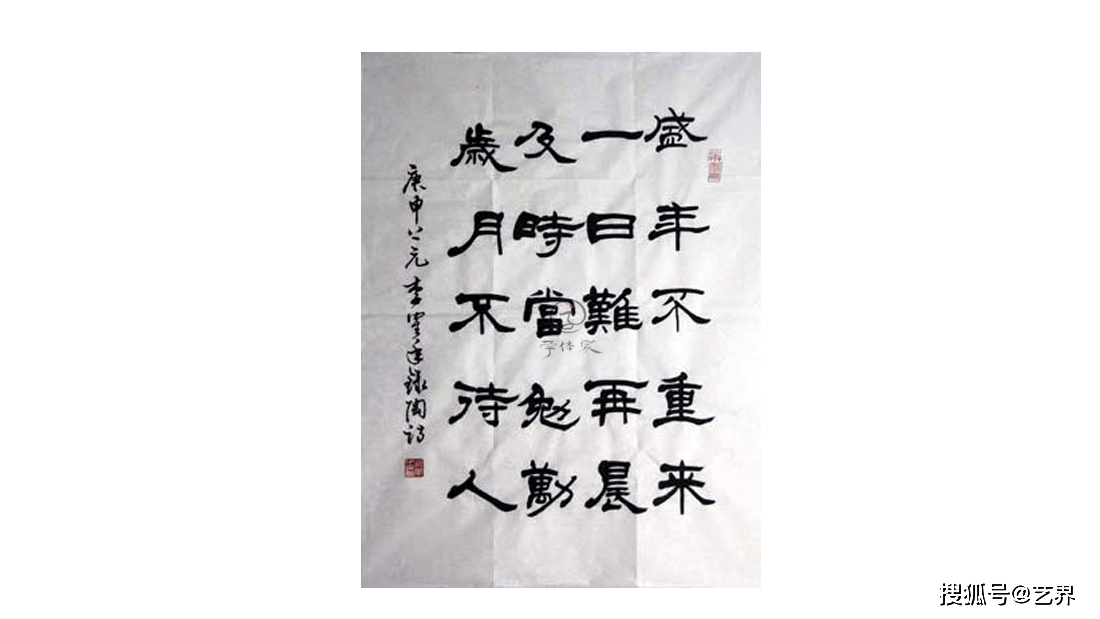 盛年不重来
一日難再晨
及時當勉勱
歲月不待人
庚申 元 李 錄陶詩
字体家
搜狐号@艺界